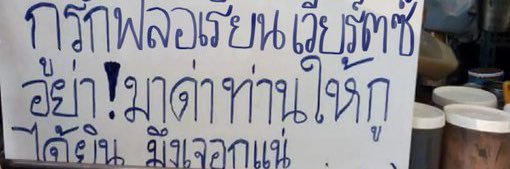 กูรักฟลอเรียนเวียร์ตซ์
อย่า!มาด่าท่านให้กู
ได้ยิน มึงเจอกูแน่